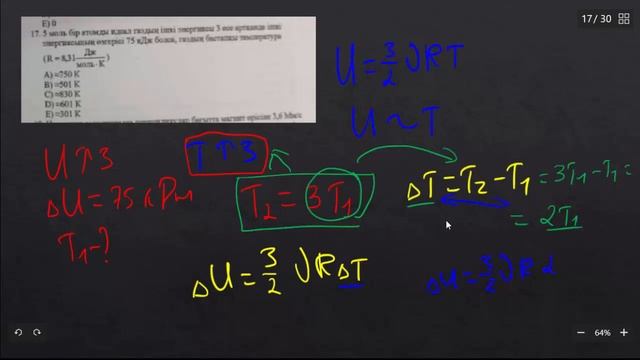 17 / 30
E) 0
17. 5 моль бір атомды идеал газдың ішкі энергиясы 3 есе артқанда ішкі
энергиясының өзгерісі 75 кДж болса, газдың бастапқы температура
(R = 8,31 Дж/моль·К)
A) ≈750 К
B) ≈501 К
C) ≈830 К
D) ≈601 К
E) ≈301 К
U = 3/2 νRT
U ~ T
U↑3
T↑3
ΔU = 75 кДж
T₂ = 3T₁
ΔT = T₂ − T₁ = 3T₁ − T₁ =
= 2T₁
T₁ − ?
ΔU = 3/2 νRΔT
ΔU = 3/2 νR2
64%